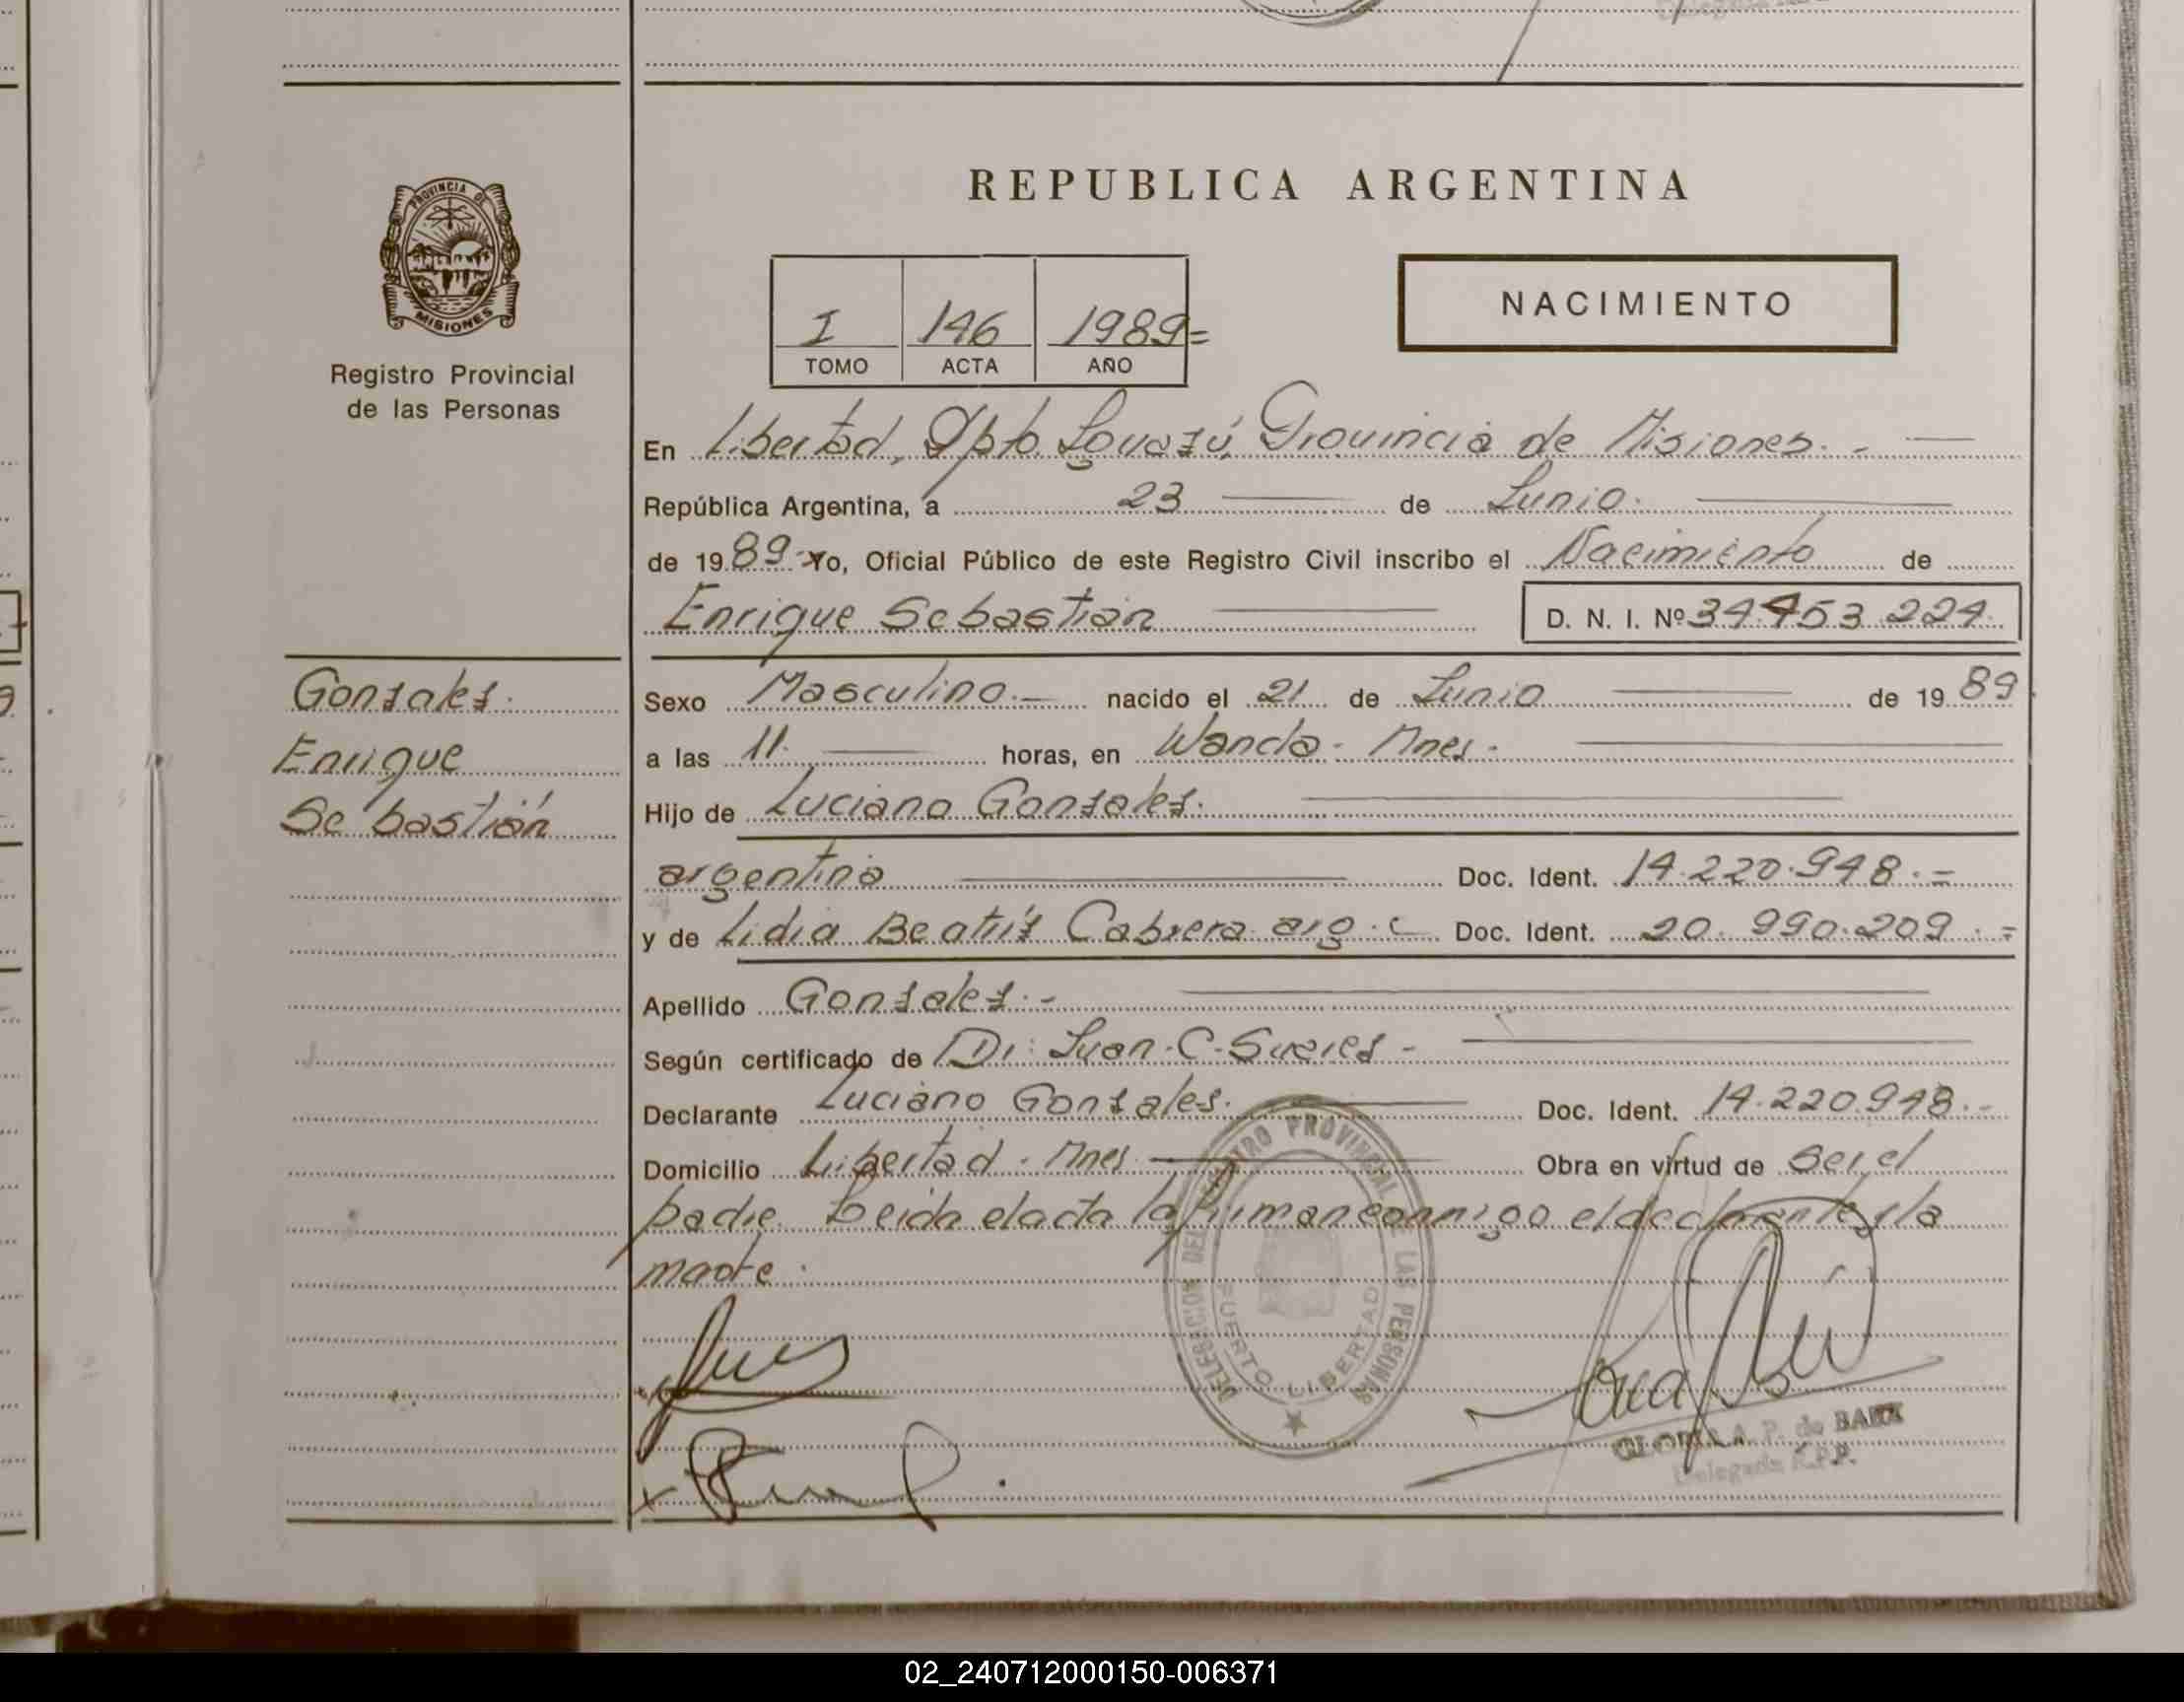 PROVINCIA DE
MISIONES
Registro Provincial
de las Personas
REPUBLICA ARGENTINA
I 146 1989=
TOMO ACTA AÑO
NACIMIENTO
En Libertad, Dpto. Iguazú, Provincia de Misiones.-
República Argentina, a 23 de Junio.
de 19 89.- Yo, Oficial Público de este Registro Civil inscribo el Nacimiento de
Enrique Sebastián D. N. I. Nº 34.453.224.
Gonzalez.
Enrique
Sebastián
Sexo Masculino.- nacido el 21 de Junio de 19 89.
a las 11. horas, en Wanda - Mnes.
Hijo de Luciano Gonzalez.
argentino Doc. Ident. 14.220.948.=
y de Lidia Beatríz Cabrera arg. Doc. Ident. 20.990.209.=
Apellido Gonzalez.-
Según certificado de Dr. Juan.C.
Declarante Luciano Gonzalez. Doc. Ident. 14.220.948.-
Domicilio Libertad. Mnes. Obra en virtud de ser el
padre. Leida el acta la firman conmigo el declarante y la
madre.
DELEGACION DEL REGISTRO PROVINCIAL DE LAS PERSONAS
PUERTO LIBERTAD
GLORIA A. P. de
Delegada R.P.P.
02_240712000150-006371